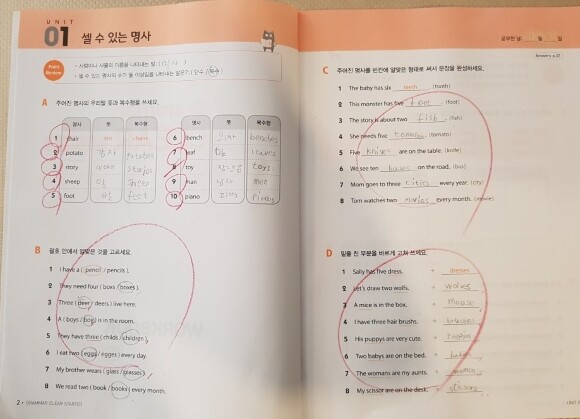 UNIT
01 셀 수 있는 명사
Point Review
• 사람이나 사물의 이름을 나타내는 말:
• 셀 수 있는 명사의 수가 둘 이상임을 나타내는 말은? ( 단수 / 복수 )
A 주어진 명사의 우리말 뜻과 복수형을 쓰세요.
명사 뜻 복수형
1 chair
2 potato 감자 potatoes
3 story stories
4 sheep 양 sheep
5 foot 발 feet
명사 뜻 복수형
6 bench benches
7 leaf leaves
8 toy 장난감 toys
9 man 남자 men
10 piano pianos
B 괄호 안에서 알맞은 것을 고르세요.
1 I have a ( pencil / pencils ).
2 They need four ( box / boxes ).
3 Three ( deer / deers ) live here.
4 A ( boys / boy ) is in the room.
5 They have three ( childs / children ).
6 I eat two ( egg / eggs ) every day.
7 My brother wears ( glass / glasses ).
8 We read two ( book / books ) every month.
2 • GRAMMAR CLEAR STARTER
공부한 날: 월 일
Answers p.22
C 주어진 명사를 빈칸에 알맞은 형태로 써서 문장을 완성하세요.
1 The baby has six teeth. (tooth)
2 This monster has five foot. (foot)
3 The story is about two fish. (fish)
4 She needs five tomatoes. (tomato)
5 Five knives are on the table. (knife)
6 We see ten buses on the road. (bus)
7 Mom goes to three cities every year. (city)
8 Tom watches two movies every month. (movie)
D 밑줄 친 부분을 바르게 고쳐 쓰세요.
1 Sally has five dress. → dresses
2 Let's draw two wolfs. → wolves
3 A mice is in the box. → mouse
4 I have three hair brushs. → brushes
5 His puppys are very cute. → puppies
6 Two babys are on the bed. → babies
7 The womans are my aunts. → women
8 My scissor are on the desk. → scissors
UNIT